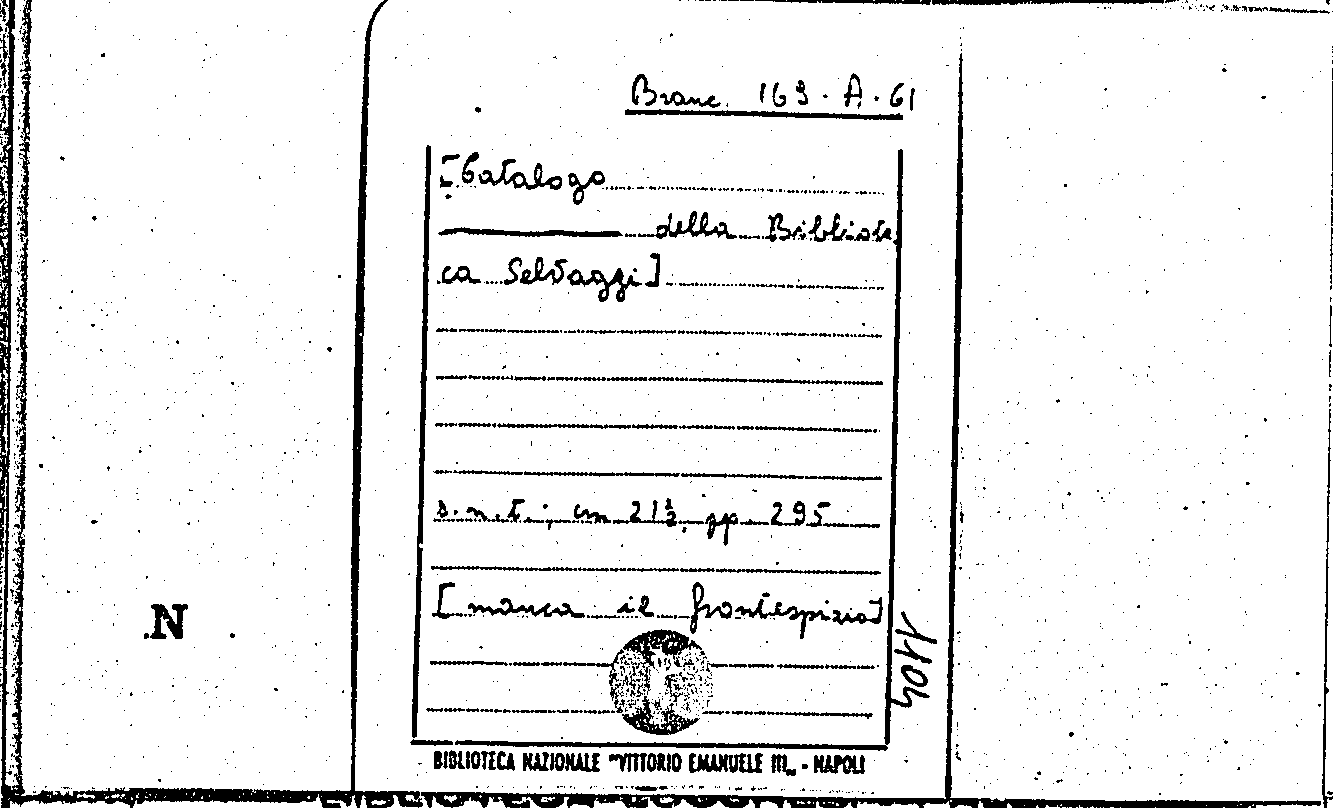 Branc. 169. A. 61
[Catalogo
della Bibliote
ca Selvaggi]
s. n. t. ; cm 21½, pp. 295
[manca il frontespizio]
1104
N
BIBLIOTECA NAZIONALE "VITTORIO EMANUELE III„ - NAPOLI